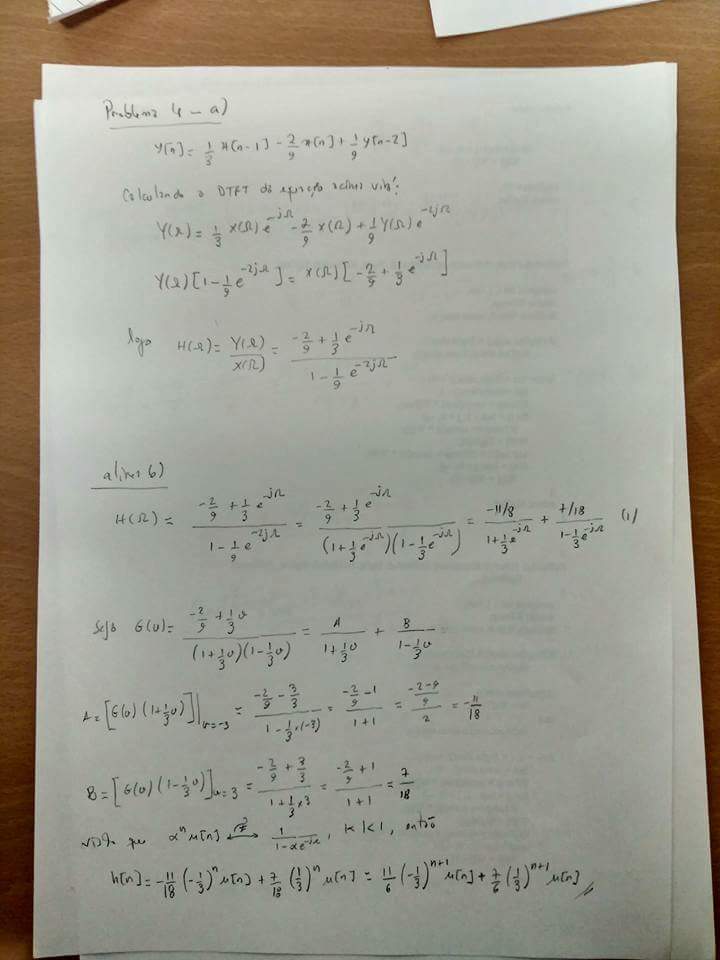 Problema 4 - a)
y[n] = 1/3 x[n-1] - 2/9 x[n] + 1/9 y[n-2]
Calculando a DTFT da equação acima virá:
Y(Ω) = 1/3 X(Ω) e^{-jΩ} - 2/9 X(Ω) + 1/9 Y(Ω) e^{-2jΩ}
Y(Ω) [1 - 1/9 e^{-2jΩ}] = X(Ω) [-2/9 + 1/3 e^{-jΩ}]
logo H(Ω) = Y(Ω)/X(Ω) = (-2/9 + 1/3 e^{-jΩ}) / (1 - 1/9 e^{-2jΩ})
alínea b)
H(Ω) = (-2/9 + 1/3 e^{-jΩ}) / (1 - 1/9 e^{-2jΩ}) = (-2/9 + 1/3 e^{-jΩ}) / ((1 + 1/3 e^{-jΩ})(1 - 1/3 e^{-jΩ})) = (-11/8) / (1 + 1/3 e^{-jΩ}) + (7/18) / (1 - 1/3 e^{-jΩ}) (1)
Seja G(v) = (-2/9 + 1/3 v) / ((1 + 1/3 v)(1 - 1/3 v)) = A / (1 + 1/3 v) + B / (1 - 1/3 v) =
A = [G(v) (1 + 1/3 v)]|_{v=-3} = (-2/9 - 3/3) / (1 - 1/3 × (-3)) = (-2/9 - 1) / (1 + 1) = ((-2-9)/9) / 2 = -11/18
B = [G(v) (1 - 1/3 v)]_{v=3} = (-2/9 + 3/3) / (1 + 1/3 × 3) = (-2/9 + 1) / (1 + 1) = 7/18
Visto que α^n u[n] ⟷^F 1 / (1 - αe^{-jΩ}), |α| < 1, então
h[n] = -11/18 (-1/3)^n u[n] + 7/18 (1/3)^n u[n] = 11/6 (-1/3)^{n+1} u[n] + 7/6 (1/3)^{n+1} u[n]